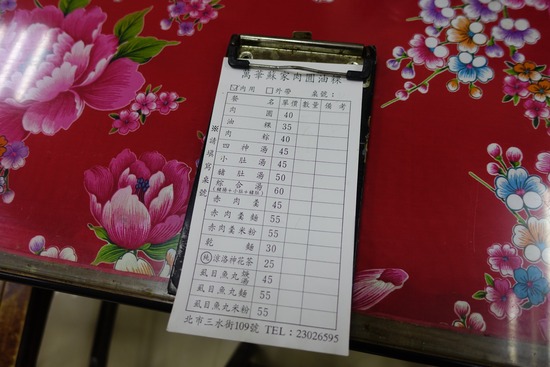 萬華蘇家肉圓油粿
☑內用 □外帶 桌號：
餐名 單價 數量 備考
肉圓 40
油粿 35
肉粽 40
四神湯 45
小肚湯 45
豬肚湯 50
綜合湯 60
赤肉羹 45
赤肉羹麵 55
赤肉羹米粉 55
乾麵 30
涼洛神花茶 25
虱目魚丸湯 45
虱目魚丸麵 55
虱目魚丸米粉 55
北市三水街109號 TEL：23026595
※請填寫桌號